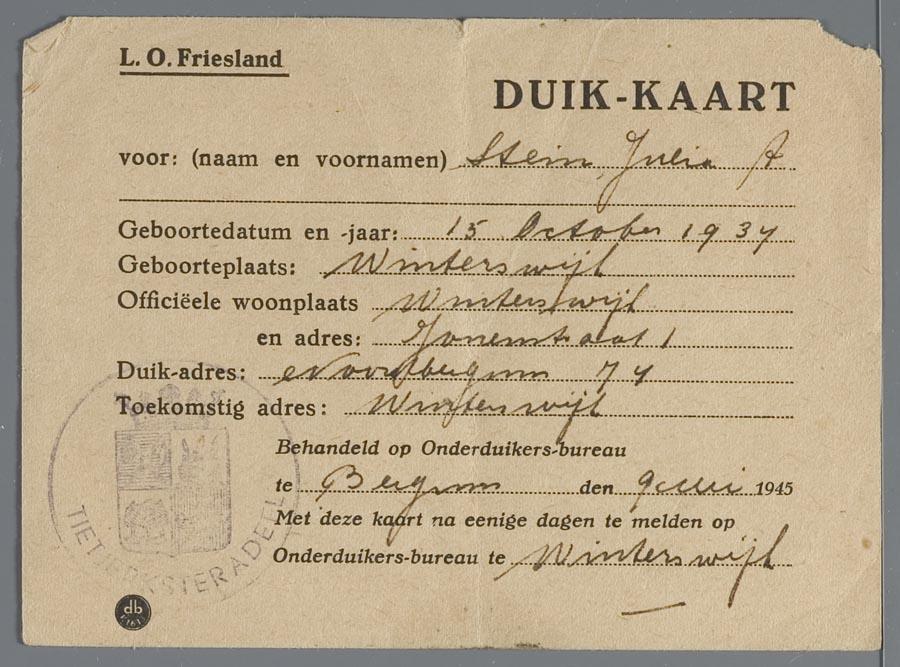 L. O. Friesland
DUIK-KAART
voor: (naam en voornamen) Stein, Julia A
Geboortedatum en -jaar: 15 October 1934
Geboorteplaats: Winterswijk
Officiëele woonplaats Winterswijk
en adres: 1
Duik-adres: Noordbergum 74
Toekomstig adres: Winterswijk
Behandeld op Onderduikers-bureau
te Bergum den 9 1945
Met deze kaart na eenige dagen te melden op
Onderduikers-bureau te Winterswijk
TIETJERKSTERADEEL
db